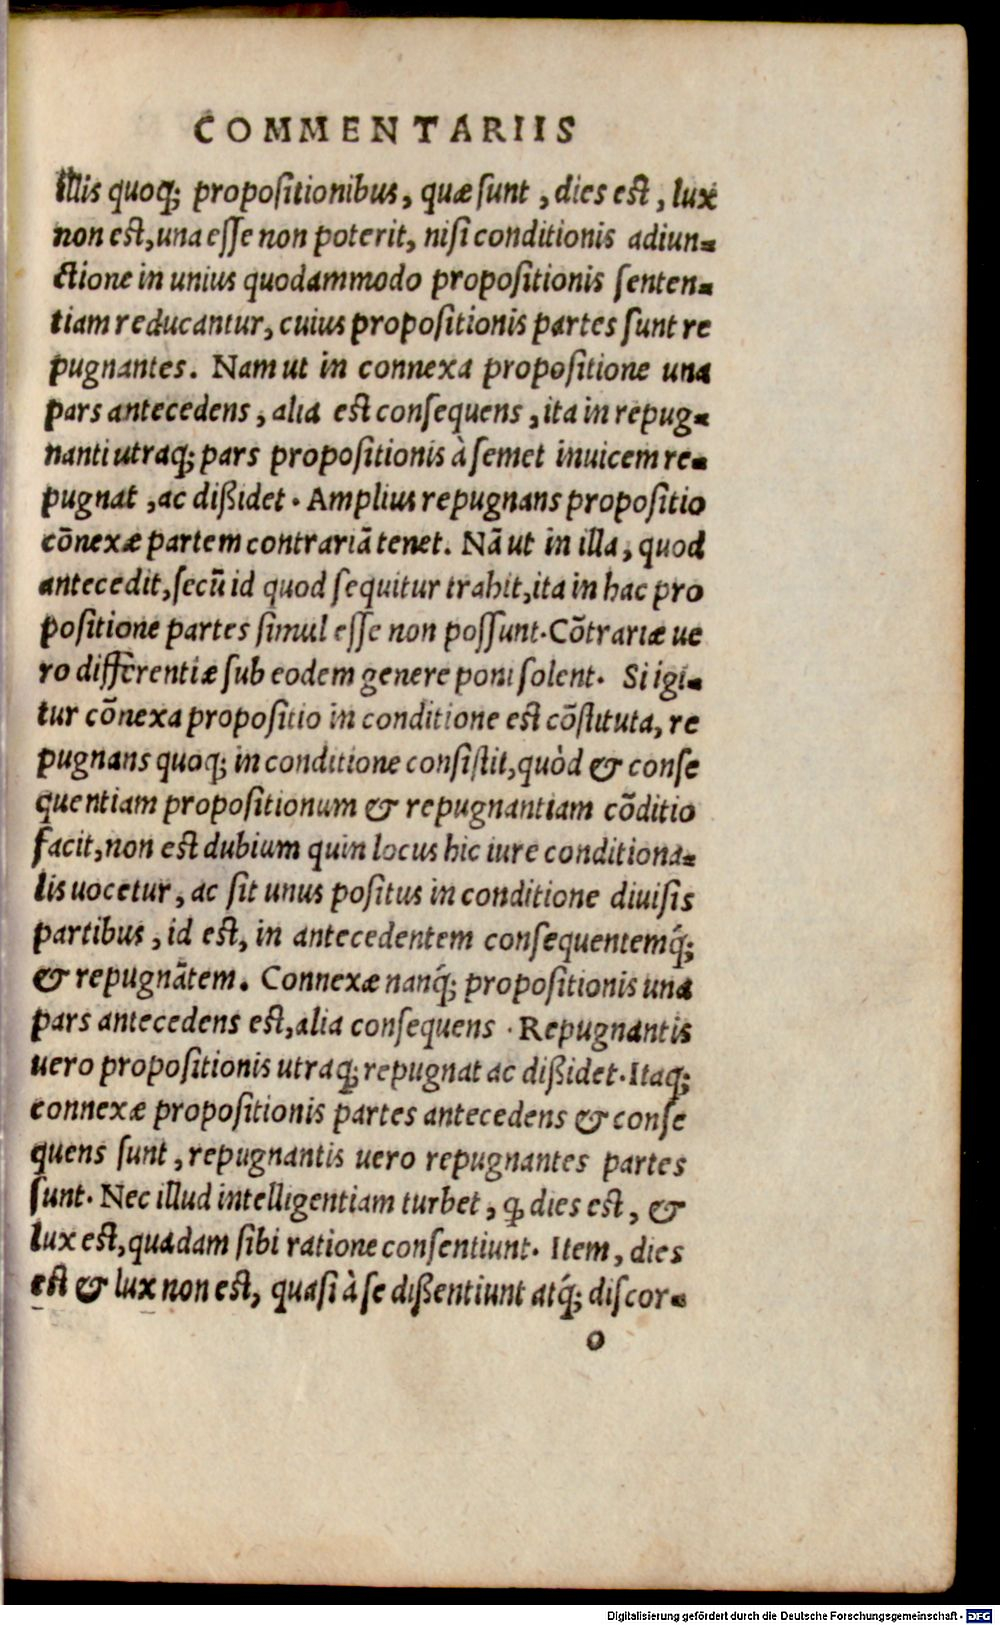 COMMENTARIIS
illis quoq; propositionibus, quæ sunt, dies est, lux
non est, una esse non poterit, nisi conditionis adiun-
ctione in unius quodammodo propositionis senten-
tiam reducantur, cuius propositionis partes sunt re
pugnantes. Nam ut in connexa propositione una
pars antecedens, alia est consequens, ita in repug-
nanti utraq; pars propositionis à semet inuicem re-
pugnat, ac dißidet. Amplius repugnans propositio
cõnexæ partem contrariã tenet. Nã ut in illa, quod
antecedit, secũ id quod sequitur trahit, ita in hac pro
positione partes simul esse non possunt. Cõtrariæ ue
ro differentiæ sub eodem genere poni solent. Si igi-
tur cõnexa propositio in conditione est cõstituta, re
pugnans quoq; in conditione consistit, quòd & conse
quentiam propositionum & repugnantiam cõditio
facit, non est dubium quin locus hic iure conditiona-
lis uocetur, ac sit unus positus in conditione diuisis
partibus, id est, in antecedentem consequentemq́;
& repugnãtem. Connexæ nanq́; propositionis una
pars antecedens est, alia consequens. Repugnantis
uero propositionis utraq; repugnat ac dißidet. Itaq;
connexæ propositionis partes antecedens & conse
quens sunt, repugnantis uero repugnantes partes
sunt. Nec illud intelligentiam turbet, ꝙ dies est, &
lux est, quadam sibi ratione consentiunt. Item, dies
est & lux non est, quasi à se dißentiunt atq́; discor-
o
Digitalisierung gefördert durch die Deutsche Forschungsgemeinschaft - DFG